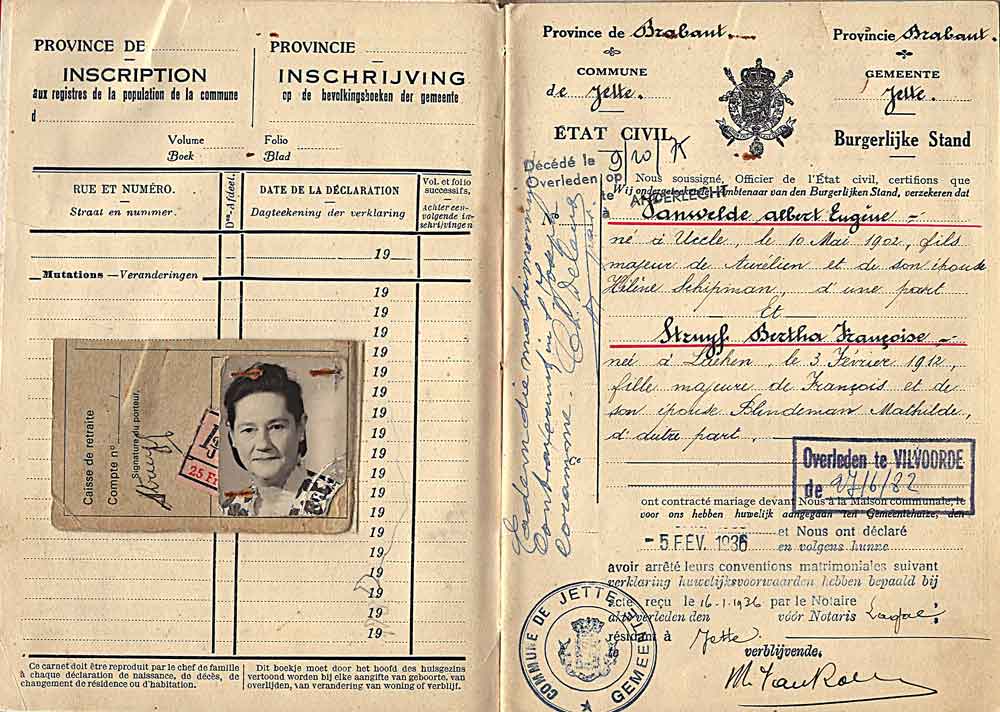 PROVINCE DE
INSCRIPTION
aux registres de la population de la commune
d
PROVINCIE
INSCHRIJVING
op de bevolkingsboeken der gemeente
Volume Folio
Boek Blad
RUE ET NUMÉRO.
Straat en nummer.
Don. Afdeel.
DATE DE LA DÉCLARATION
Dagteekening der verklaring
Vol. et folio
successifs,
Achtereen-
volgende in-
schrijvingen
19
Mutations — Veranderingen
19
19
19
19
19
19
19
19
19
19
19
19
19
19
19
19
19
19
Caisse de retraite
Compte n°
Signature du porteur,
25 Fr
Ce carnet doit être reproduit par le chef de famille
à chaque déclaration de naissance, de décès, de
changement de résidence ou d'habitation.
Dit boekje moet door het hoofd des huisgezins
vertoond worden bij elke aangifte van geboorte, van
overlijden, van verandering van woning of verblijf.
Province de Brabant.
COMMUNE
de Jette.
ÉTAT CIVIL
Provincie Brabant.
GEMEENTE
Jette.
Burgerlijke Stand
Décédé le
Overleden op
9/10/
te
à
ANDERLECHT
Nous soussigné, Officier de l'État civil, certifions que
Wij ondergeteekende Ambtenaar van den Burgerlijken Stand, verzekeren dat
Vanwelde Albert Eugène
né à Uccle, le 10 Mai 1902, fils
majeur de Aurélien et de son épouse
Hélène Schipman, d'une part
Et
Struyf Bertha Françoise
née à Laeken, le 3 Février 1912,
fille majeure de François et de
son épouse Blindeman Mathilde,
d'autre part,
Overleden te VILVOORDE
de 27/6/82
ont contracté mariage devant Nous à la Maison communale, le
voor ons hebben huwelijk aangegaan ten Gemeentehuize, den
-5 FEV. 1936 et Nous ont déclaré
en volgens hunne
avoir arrêté leurs conventions matrimoniales suivant
verklaring huwelijksvoorwaarden hebben bepaald bij
acte reçu le 16-1-1936 par le Notaire
akte verleden den vóór Notaris
résidant à Jette.
te verblijvende.
COMMUNE DE JETTE
GEMEENTE